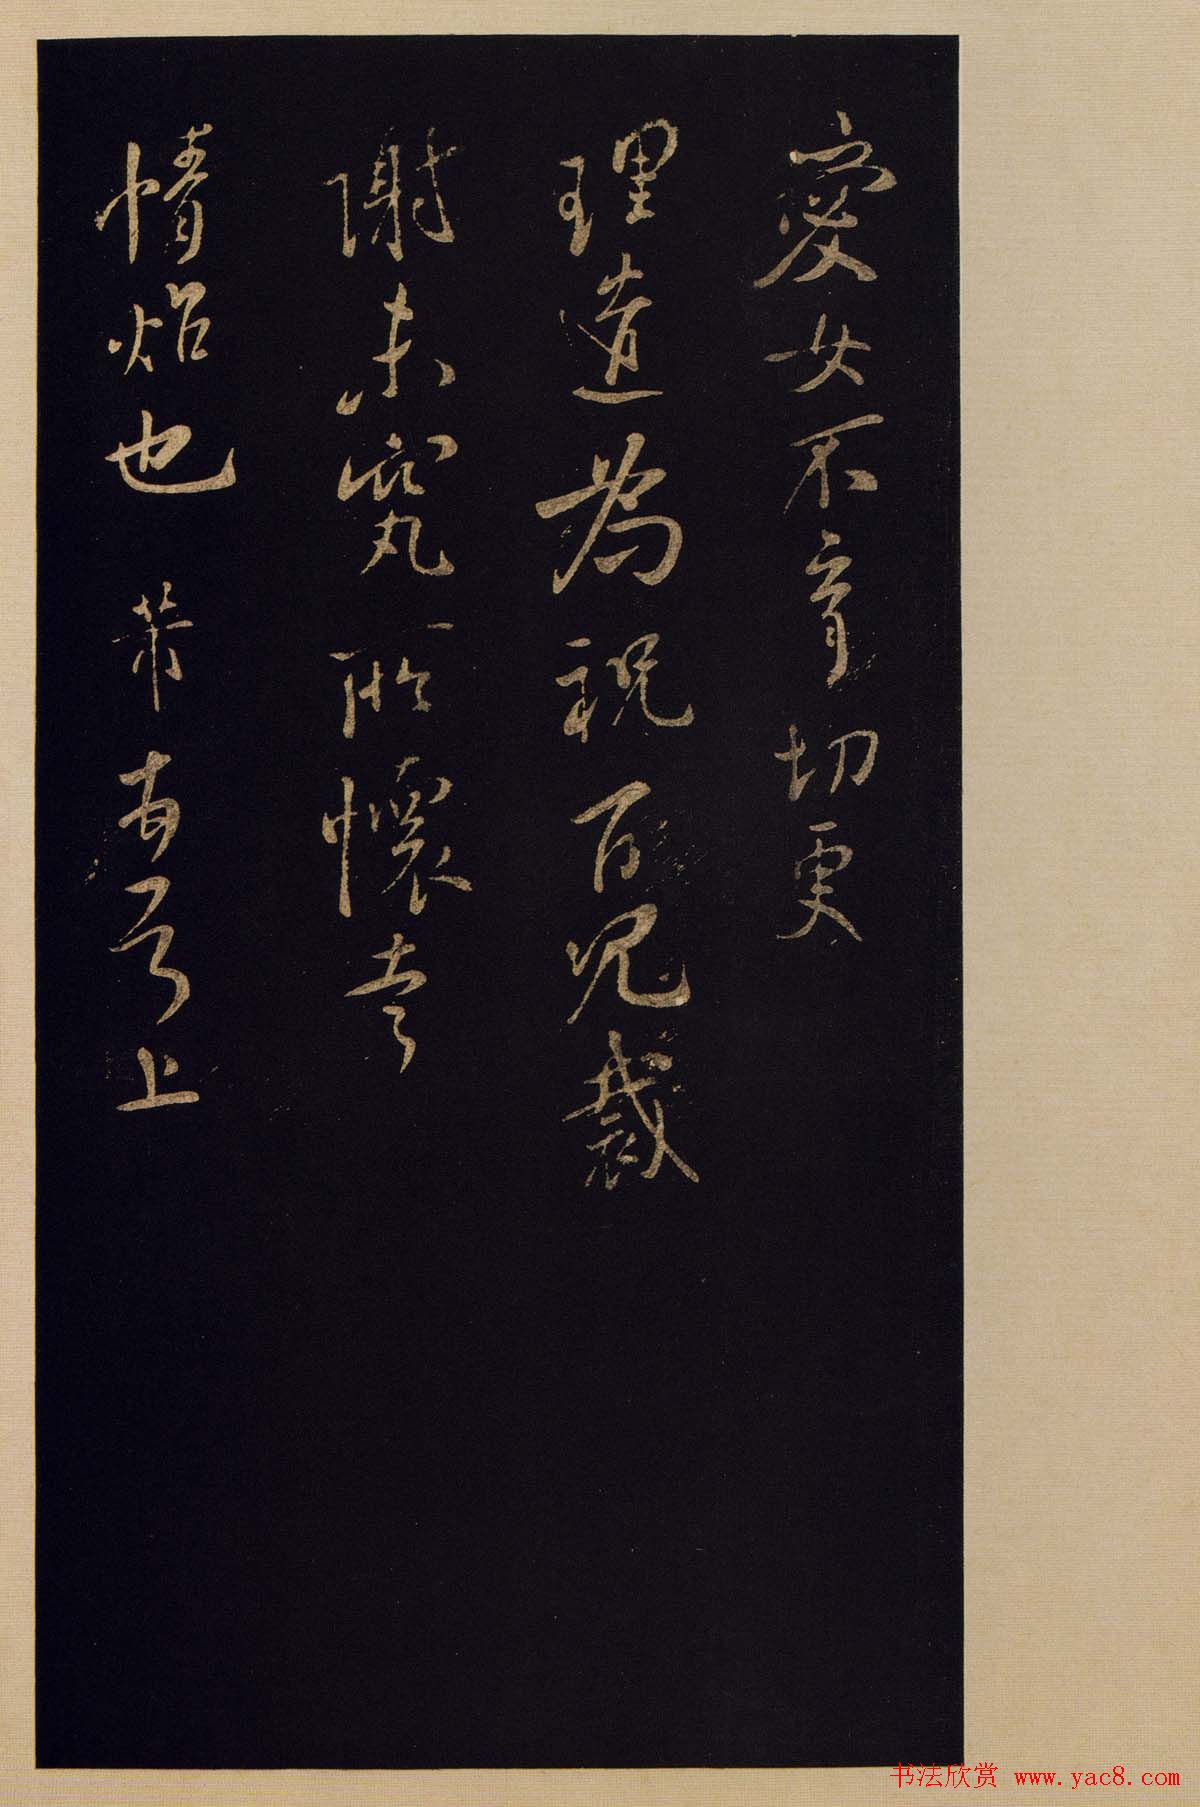 愛女不育切更
理遣為祝百咒裁
謝未究所懷春
情炤也 芾頓首上
书法欣赏 www.yac8.com